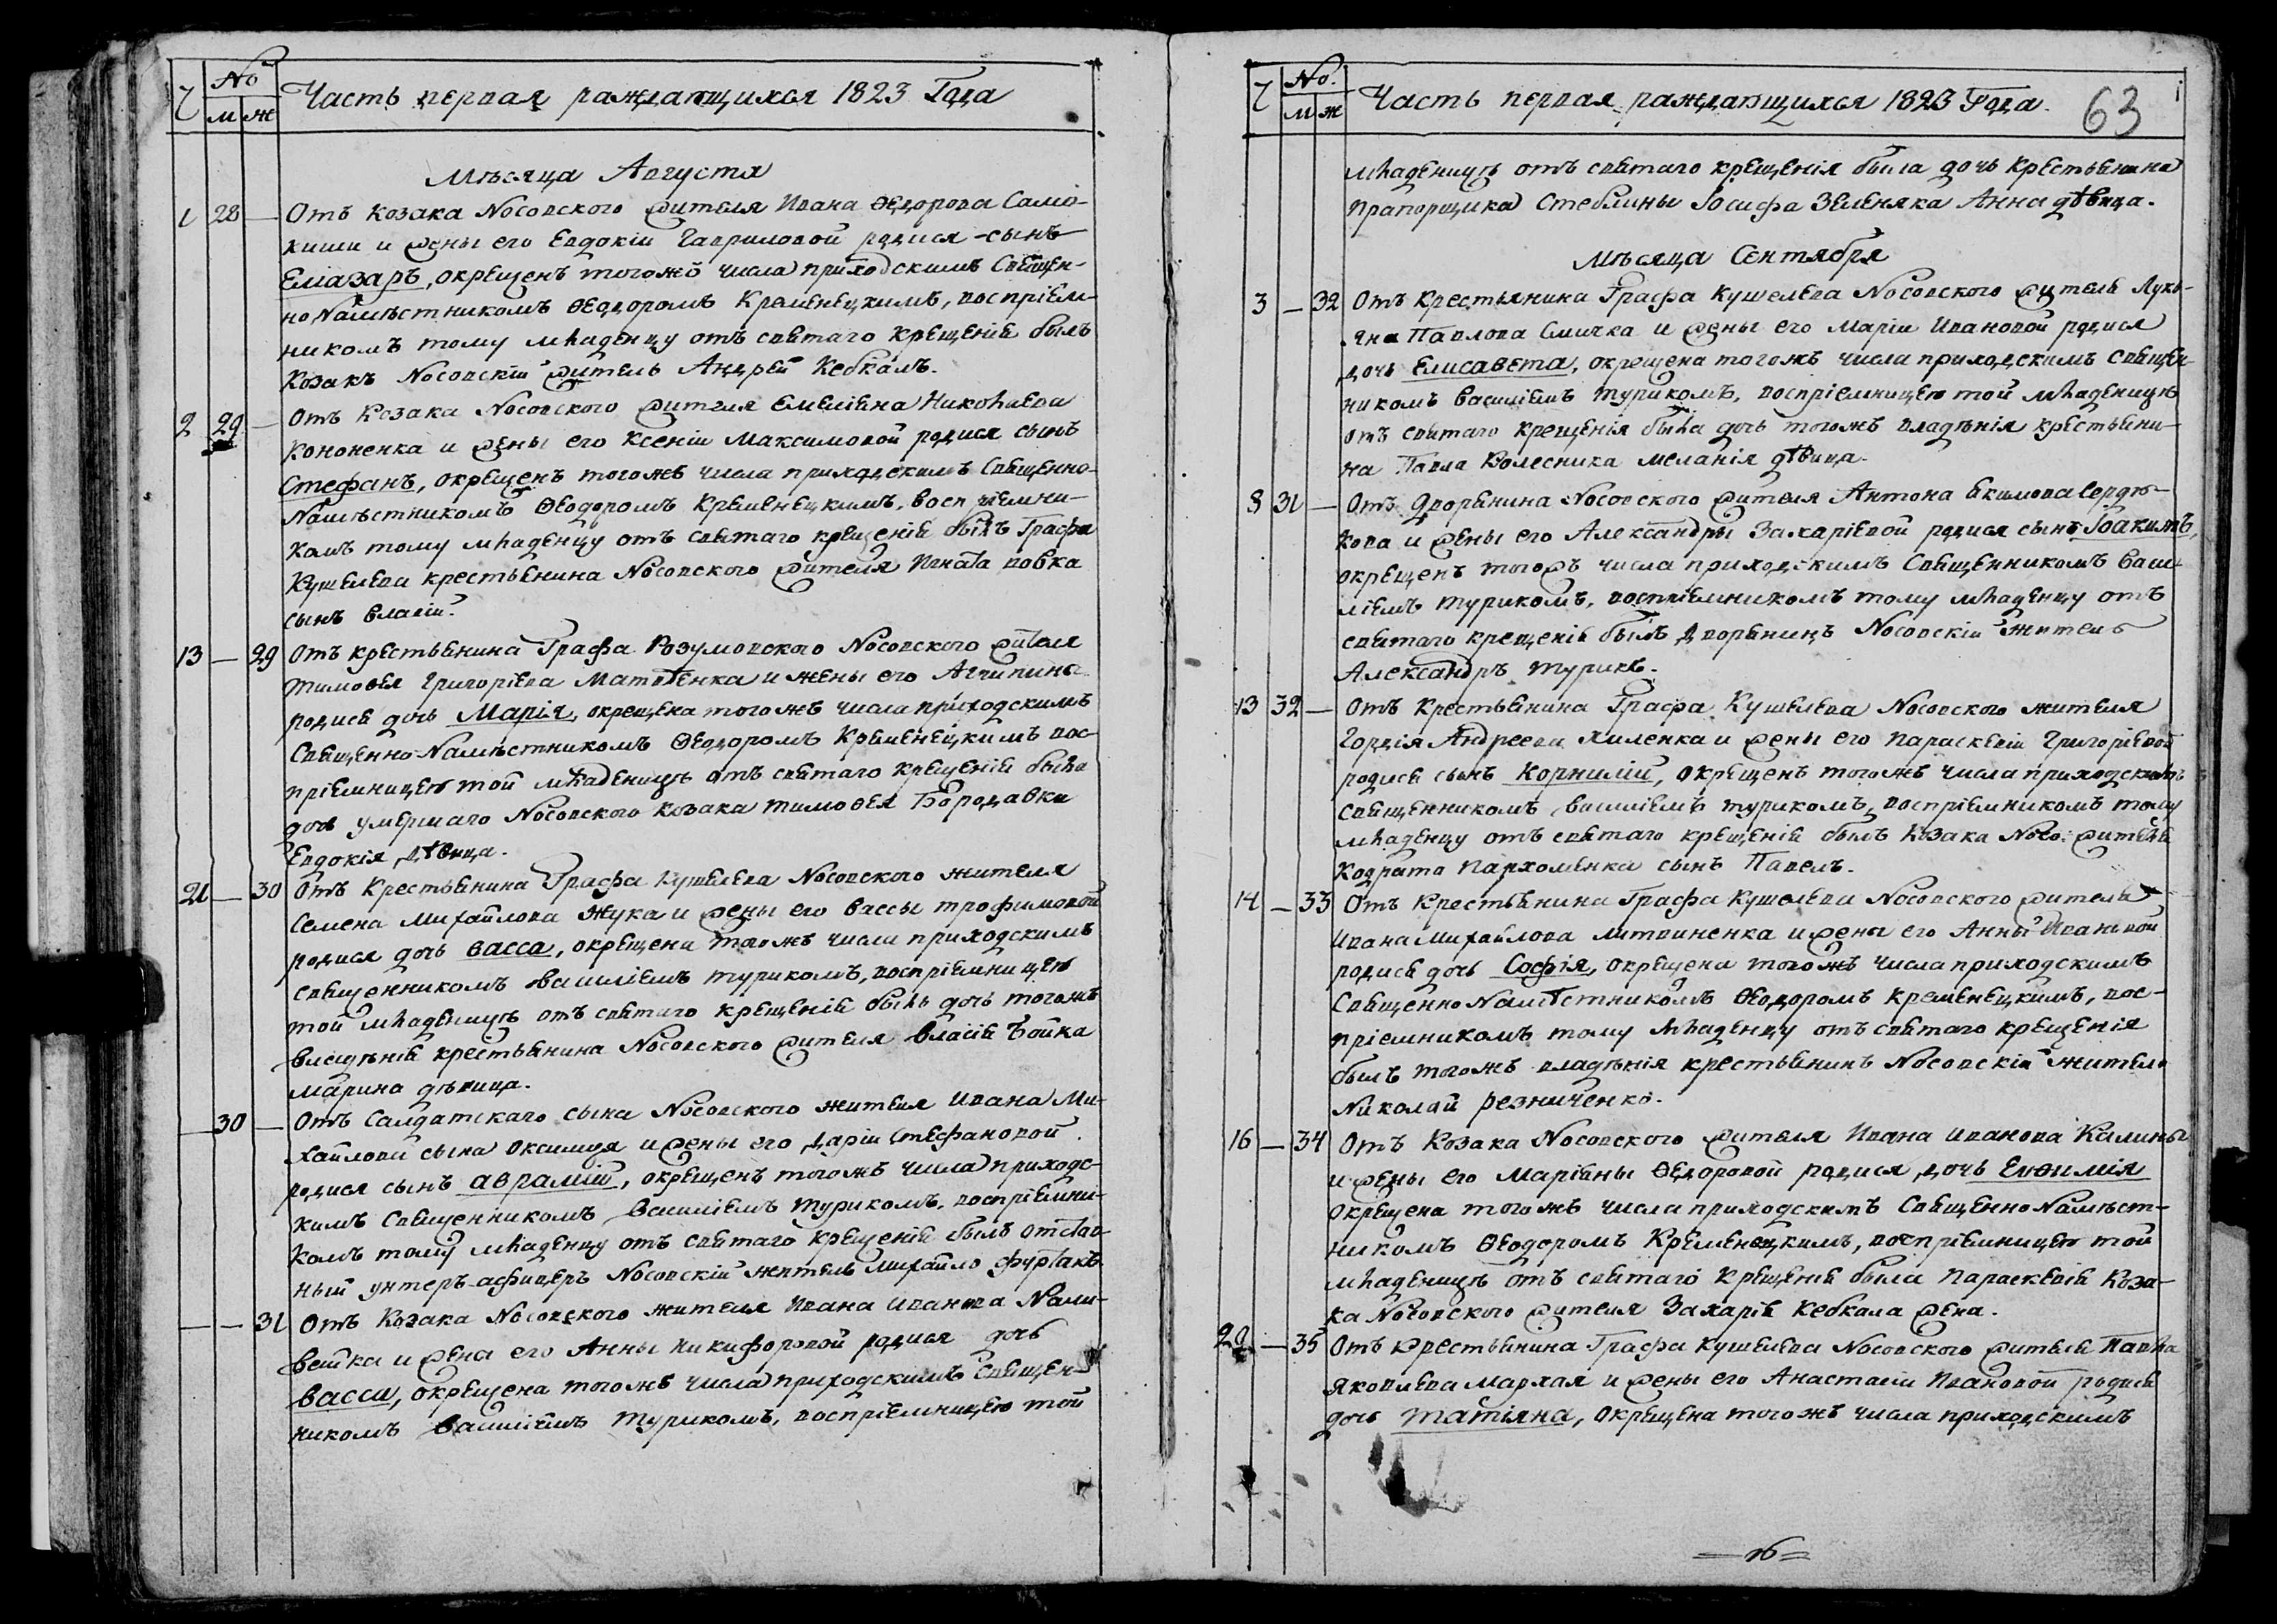 Ч № м ж Часть первая раждающихся 1823 Года
Мѣсяца Августа
1 28 — Отъ Козака Носовского жителя Ивана Ѳедорова Само-
киши и жены его Евдокіи Гавриловой родися сынъ
Еліазаръ, окрещенъ тогожъ числа приходскимъ Священ-
но Намѣстникомъ Ѳеодоромъ Кременецкимъ, воспріем-
никомъ тому младенцу отъ святаго крещенія былъ
Козакъ Носовскій житель Андрей Кебкалъ.
2 29 — Отъ Козака Носовского жителя Емеліяна Николаева
Кононенка и жены его Ксеніи Максимовой родися сынъ
Стефанъ, окрещенъ тогожъ числа приходскимъ Священно-
Намѣстникомъ Ѳеодоромъ Кременецкимъ, воспріемни-
комъ тому младенцу отъ святаго крещенія былъ Графа
Кушелева крестьянина Носовского жителя Игната Вовка
сынъ Власій.
13 — 29 Отъ крестьянина Графа Розумовского Носовского жителя
Тимоѳея Григоріева Матвѣенка и жены его Агрипины
родися дочь Марія, окрещена тогожъ числа приходскимъ
Священно-Намѣстникомъ Ѳеодоромъ Кременецкимъ вос-
пріемницею той младеницѣ отъ святаго крещенія была
дочь умершаго Носовского Козака Тимоѳея Бородавки
Евдокія дѣвица.
21 — 30 Отъ Крестьянина Графа Кушелева Носовского жителя
Семена Михайлова Жука и жены его Вассы Трофимовой
родися дочь Васса, окрещена тогожъ числа приходскимъ
священникомъ Василіемъ Турикомъ, воспріемницею
той младеницѣ отъ святаго крещенія была дочь тогожъ
владѣнія крестьянина Носовского жителя Власія Бойка
Марина дѣвица.
— 30 — Отъ Салдатскаго сына Носовского жителя Ивана Ми-
хайлова сына Оксимця и жены его Даріи Стефановой
родися сынъ Аврамій, окрещенъ тогожъ числа приходс-
кимъ Священникомъ Василіемъ Турикомъ, воспріемни-
комъ тому младенцу отъ святаго крещенія былъ отстав-
ный унтеръ-афицеръ Носовскій житель Михайло Фуртакъ.
— — 31 Отъ Козака Носовского жителя Ивана Иванова Нали-
вайка и жена его Анны Никифоровой родися дочь
Васса, окрещена тогожъ числа приходскимъ Священ-
никомъ Василіемъ Турикомъ, воспріемницею той
Ч №. м ж Часть первая раждающихся 1823 Года. 63
младеницѣ отъ святаго крещенія была дочь Крестьянина
Прапорщика Стеблины Іосифа Зеленяка Анна дѣвица.
Мѣсяца Сентября
3 — 32 Отъ Крестьянина Графа Кушелева Носовского жителя Лукь-
яна Павлова Смичка и жены его Маріи Ивановой родися
дочь Елисавета, окрещена тогожъ числа приходскимъ Священ-
никомъ Василіемъ Турикомъ, воспріемницею той младеницѣ
отъ святаго крещенія была дочь тогожъ владѣнія крестьяни-
на Павла Колесника Меланія дѣвица.
8 31 — Отъ Дворянина Носовского жителя Антона Екимова Сердю-
кова и жены его Александры Захаріевой родися сынъ Іоакимъ,
окрещенъ тогожъ числа приходскимъ Священникомъ Васи-
ліемъ Турикомъ, воспріемникомъ тому младенцу отъ
святаго крещенія былъ Дворянинъ Носовскій житель
Александръ Турикъ.
13 32 — Отъ Крестьянина Графа Кушелева Носовского жителя
Гордія Андреева Хиленка и жены его Параскевіи Григоріевой
родися сынъ Корнилій, окрещенъ тогожъ числа приходскимъ
священникомъ Василіемъ Турикомъ, воспріемникомъ тому
младенцу отъ святаго крещенія былъ Козака Носо: жителя
Кодрата Пархоменка сынъ Павелъ.
14 — 33 Отъ Крестьянина Графа Кушелева Носовского жителя
Ивана Михайлова Литвиненка и жены его Анны Ивановой
родися дочь Софія, окрещена тогожъ числа приходскимъ
Священно Намѣстникомъ Ѳеодоромъ Кременецкимъ, вос-
пріемникомъ тому младенцу отъ святаго крещенія
былъ тогожъ владѣнія крестьянинъ Носовскій житель
Николай Резниченко.
16 — 34 Отъ Козака Носовского жителя Ивана Иванова Калины
и жены его Маріяны Ѳедоровой родися дочь Евѳимія
окрещена тогожъ числа приходскимъ Священно Намѣст-
никомъ Ѳеодоромъ Кременецкимъ, воспріемницею той
младеницѣ отъ святаго крещенія была Параскевія Коза-
ка Носовского жителя Захарія Кебкала жена.
22 — 35 Отъ Крестьянина Графа Кушелева Носовского жителя Павла
Яковлева Мархая и жены его Анастасіи Ивановой родися
дочь Татіяна, окрещена тогожъ числа приходскимъ